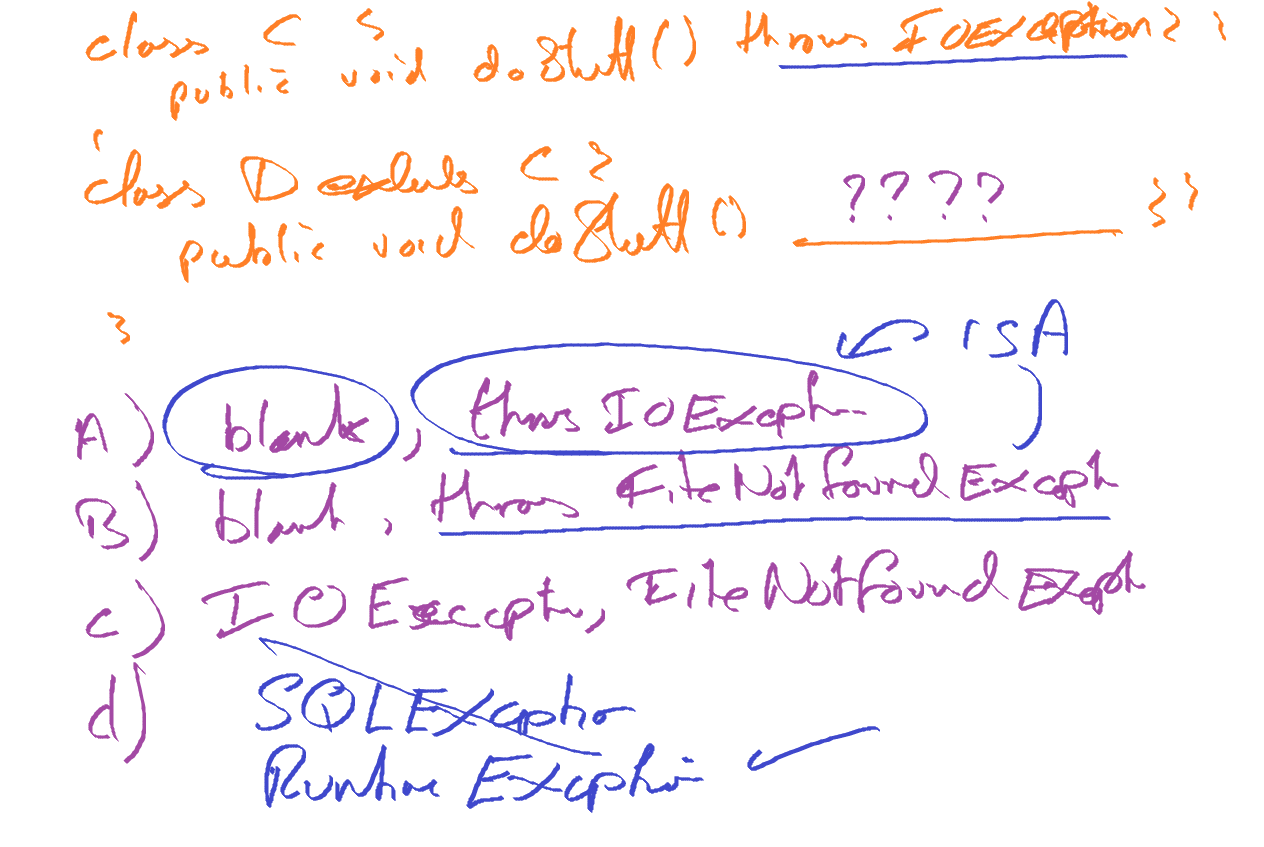 class C {
public void doStuff() throws IOException { }
}
class D extends C {
public void doStuff() ???? { }
}
isA
A) blank, throws IOExceptn
B) blank, throws FileNotFoundExcept
c) IOExceptn, FileNotFoundExcept
d) SQLException
Runtime Exception